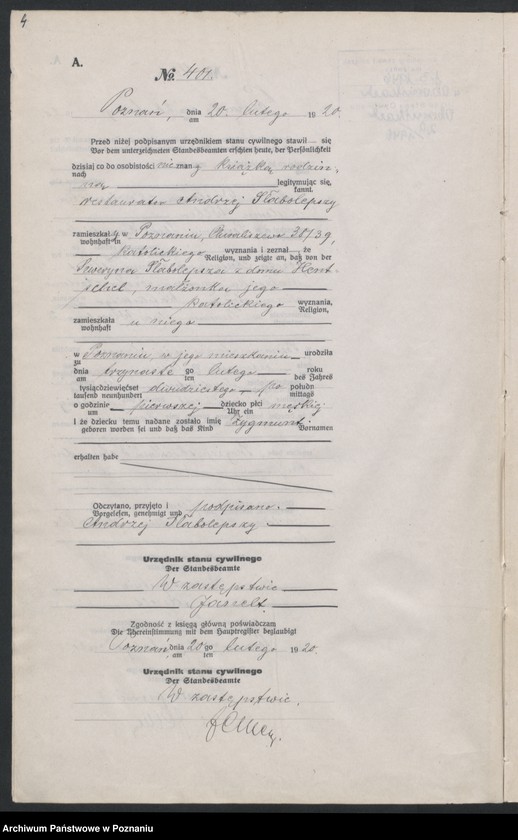 4
A.
No. 401.
Poznań, dnia 20. lutego 1920.
am
Przed niżej podpisanym urzędnikiem stanu cywilnego stawił się
Vor dem unterzeichneten Standesbeamten erschien heute, der Persönlichkeit
dzisiaj co do osobistości
nach
książką rodzin,
ną legitymując się,
kannt.
restaurator Andrzej Słabolepszy
zamieszkały w Poznaniu, Chwaliszewo 38/39,
wohnhaft in
katolickiego wyznania i zeznał, że
Religion, und zeigte an, daß von der
Seweryna Słabolepsza z domu Hent-
schel, małżonka jego
katolickiego wyznania,
Religion,
zamieszkała u niego
wohnhaft
w Poznaniu, w jego mieszkaniu urodziła
zu
dnia trzynastego lutego roku
am ten des Jahres
tysiącdziewięćset dwudziestego po połudn
tausend neunhundert mittags
o godzinie pierwszej dziecko płci męskiej
um Uhr ein
i że dziecku temu nadane zostało imię Zygmunt.
geboren worden sei und daß das Kind Vornamen
erhalten habe
Odczytano, przyjęto i podpisano.
Vorgelesen, genehmigt und
Andrzej Słabolepszy.
Urzędnik stanu cywilnego
Der Standesbeamte
W zastępstwie
Zgodność z księgą główną poświadczam
Die Übereinstimmung mit dem Hauptregister beglaubigt
Poznań dnia 20 go lutego 1920.
am ten
Urzędnik stanu cywilnego
Der Standesbeamte
W zastępstwie.
Archiwum Państwowe w Poznaniu